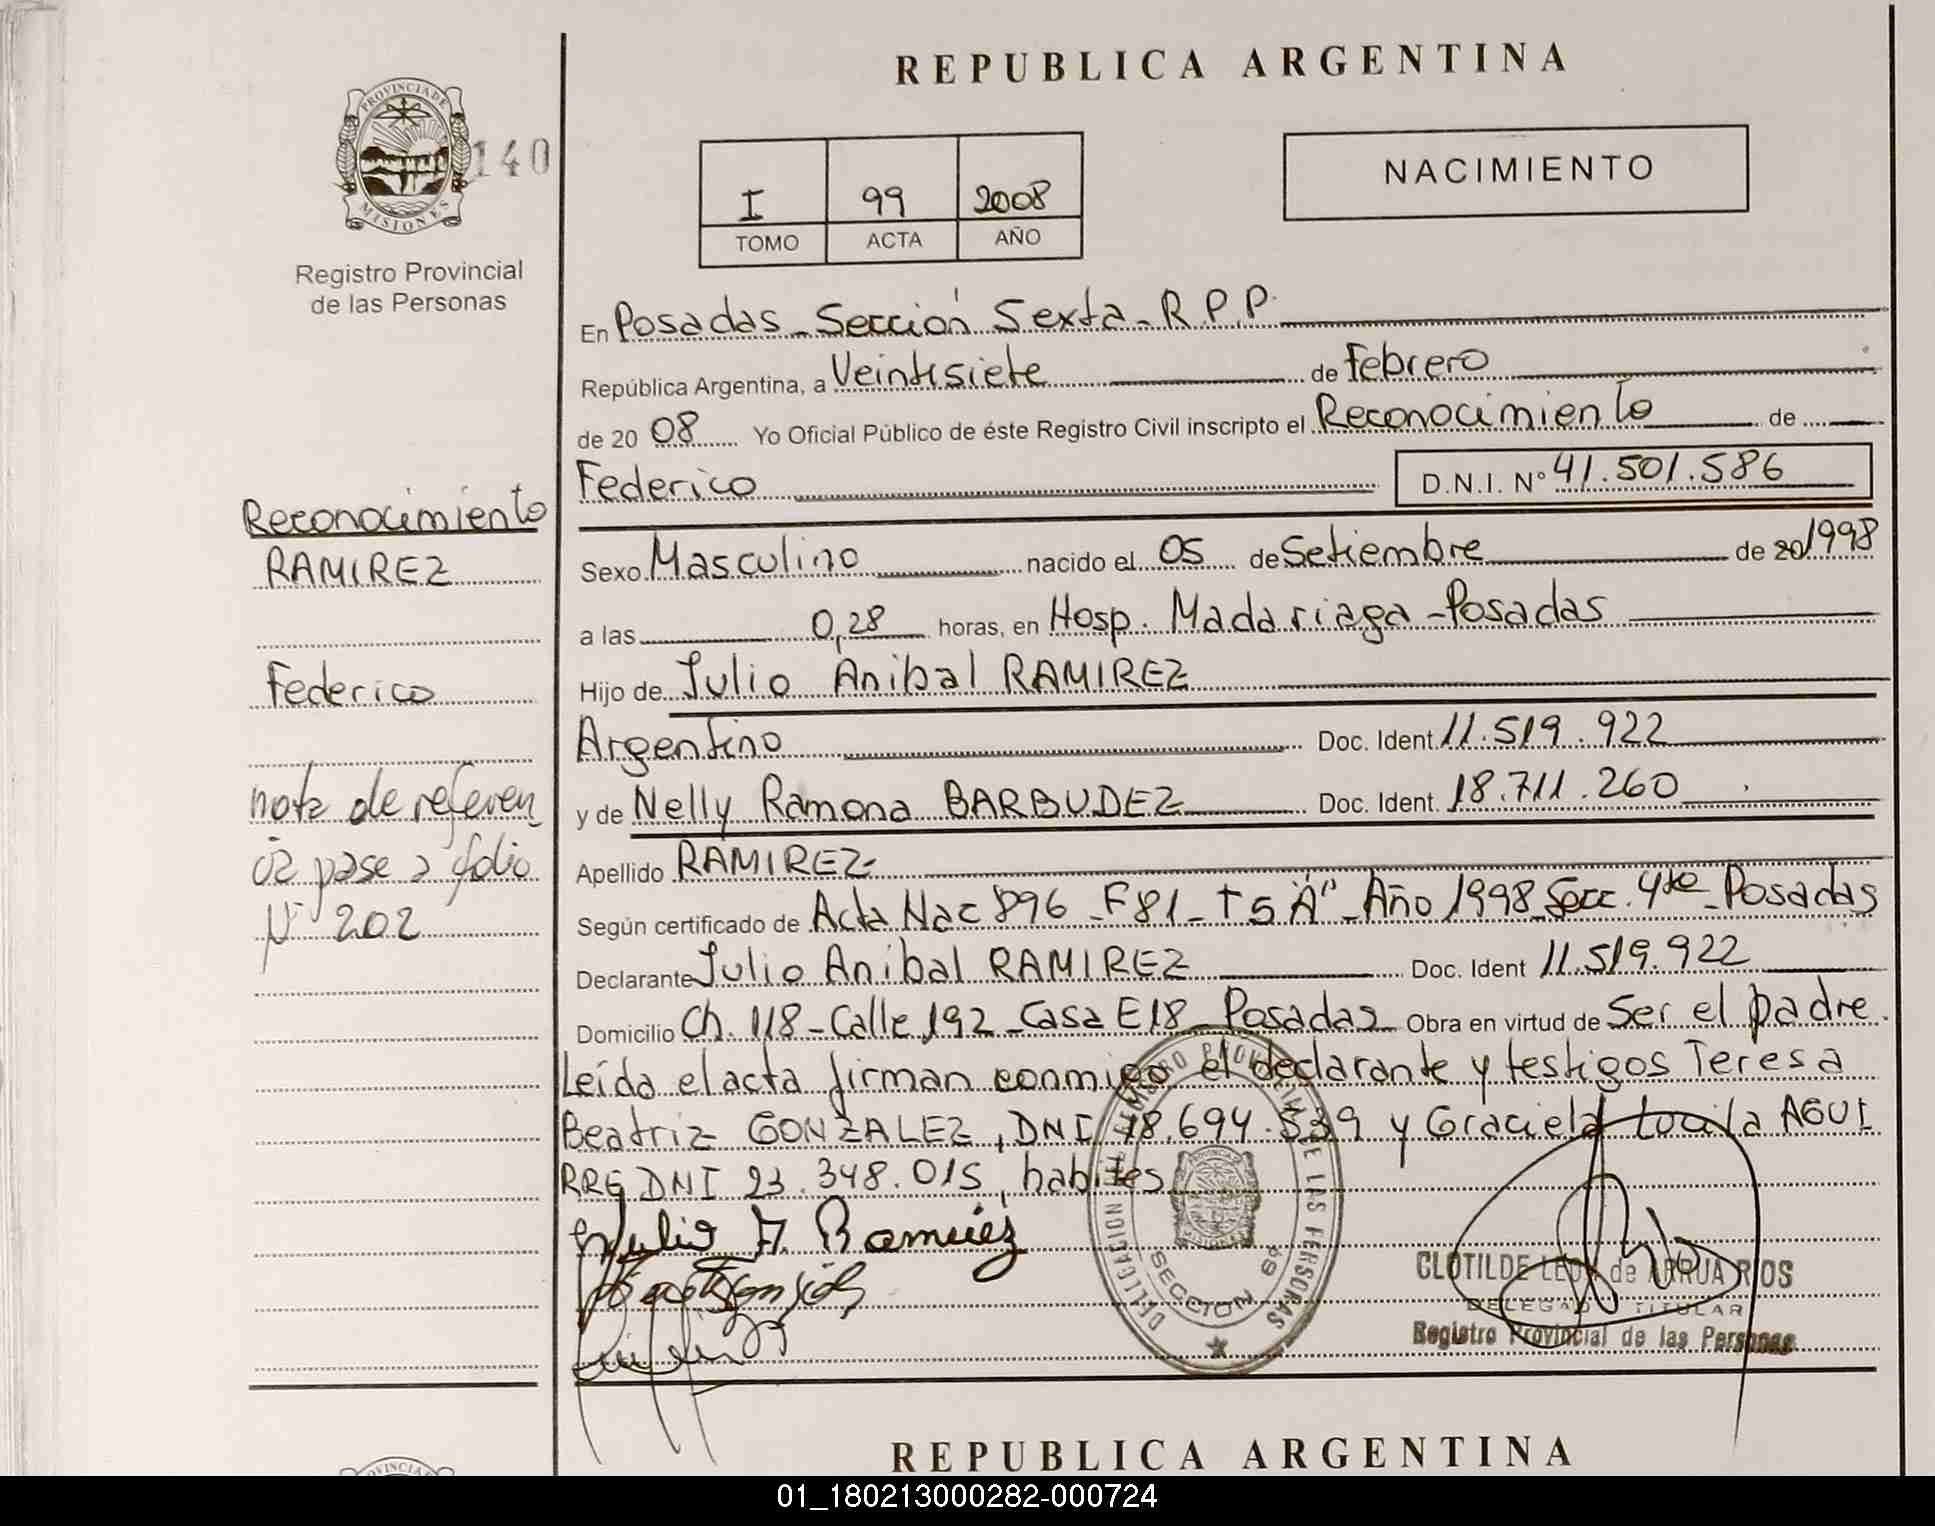 REPUBLICA ARGENTINA
PROVINCIA DE
MISIONES
140
Registro Provincial
de las Personas
I 99 2008
TOMO ACTA AÑO
NACIMIENTO
En Posadas - Sección Sexta - R.P.P.
República Argentina, a Veintisiete de Febrero
de 20 08 Yo Oficial Público de éste Registro Civil inscripto el Reconocimiento de
Federico D.N.I. N° 41.501.586
Sexo Masculino nacido el 05 de Setiembre de 20 1998
a las 0,28 horas, en Hosp. Madariaga - Posadas
Hijo de Julio Anibal RAMIREZ
Argentino Doc. Ident. 11.519.922
y de Nelly Ramona BARBUDEZ Doc. Ident. 18.711.260
Apellido RAMIREZ
Según certificado de Acta Nac 896 - F 81 - T 5 A" - Año 1998 Secc. 4ta - Posadas
Declarante Julio Anibal RAMIREZ Doc. Ident 11.519.922
Domicilio Ch. 118 - Calle 192 - Casa E18 - Posadas Obra en virtud de Ser el padre.
Leída el acta firman conmigo el declarante y testigos Teresa
Beatriz GONZALEZ, DNI 18.694.539 y Graciela Lucila AGUI
RRE DNI 23.348.015, habiles
Julio A. Ramirez
Reconocimiento
RAMIREZ
Federico
nota de referen
cia pase a folio
N° 202
DELEGACION DEL REGISTRO PROVINCIAL DE LAS PERSONAS
SECCION 6a
MISIONES
CLOTILDE LEON de ARRUA RIOS
DELEGADO TITULAR
Registro Provincial de las Personas
REPUBLICA ARGENTINA
01_180213000282-000724